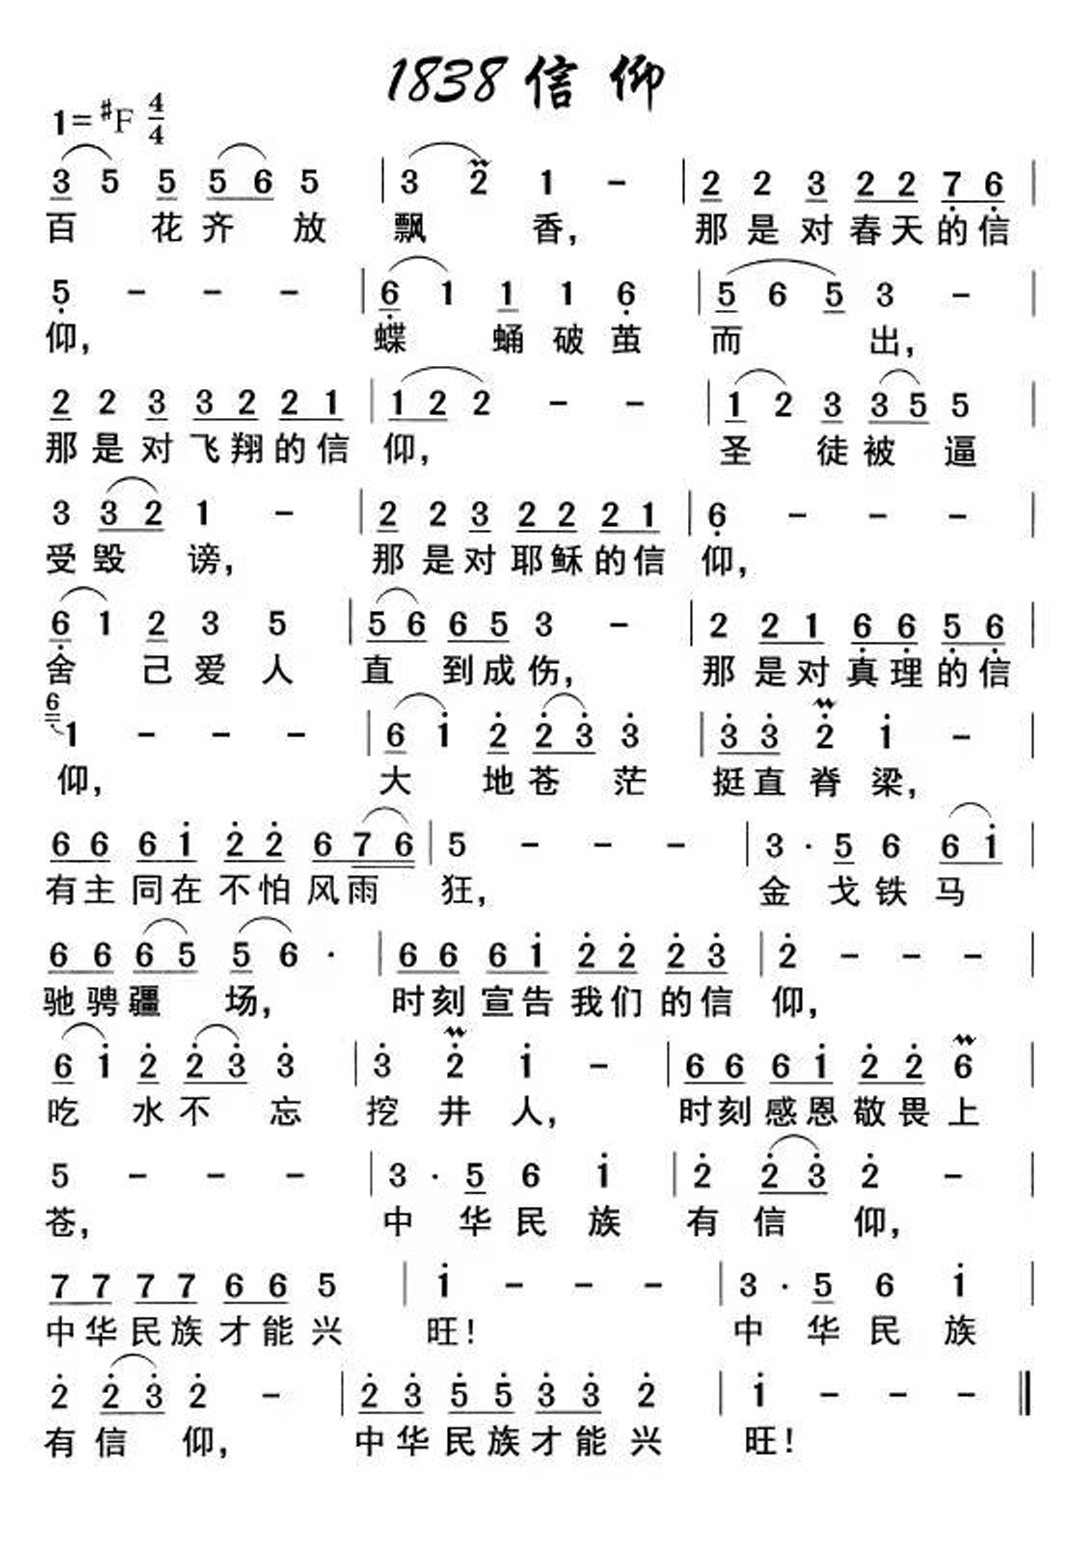 1838 信仰
1=♯F 4/4
3 5 5 5 6 5 | 3 2 1 - | 2 2 3 2 2 7 6 |
百 花 齐 放 飘 香, 那 是 对 春 天 的 信
5 - - - | 6 1 1 1 6 | 5 6 5 3 - |
仰, 蝶 蛹 破 茧 而 出,
2 2 3 3 2 2 1 | 1 2 2 - - | 1 2 3 3 5 5
那 是 对 飞 翔 的 信 仰, 圣 徒 被 逼
3 3 2 1 - | 2 2 3 2 2 2 1 | 6 - - - |
受 毁 谤, 那 是 对 耶 稣 的 信 仰,
6 1 2 3 5 | 5 6 6 5 3 - | 2 2 1 6 6 5 6 |
舍 己 爱 人 直 到 成 伤, 那 是 对 真 理 的 信
6 1 - - - | 6 1 2 2 3 3 | 3 3 2 1 - |
仰, 大 地 苍 茫 挺 直 脊 梁,
6 6 6 1 2 2 6 7 6 | 5 - - - | 3 · 5 6 6 1 |
有 主 同 在 不 怕 风 雨 狂, 金 戈 铁 马
6 6 6 5 5 6 · | 6 6 6 1 2 2 2 3 | 2 - - - |
驰 骋 疆 场, 时 刻 宣 告 我 们 的 信 仰,
6 1 2 2 3 3 | 3 2 1 - | 6 6 6 1 2 2 6 |
吃 水 不 忘 挖 井 人, 时 刻 感 恩 敬 畏 上
5 - - - | 3 · 5 6 1 | 2 2 3 2 - |
苍, 中 华 民 族 有 信 仰,
7 7 7 7 6 6 5 | 1 - - - | 3 · 5 6 1 |
中 华 民 族 才 能 兴 旺! 中 华 民 族
2 2 3 2 - | 2 3 5 5 3 3 2 | 1 - - - ‖
有 信 仰, 中 华 民 族 才 能 兴 旺!